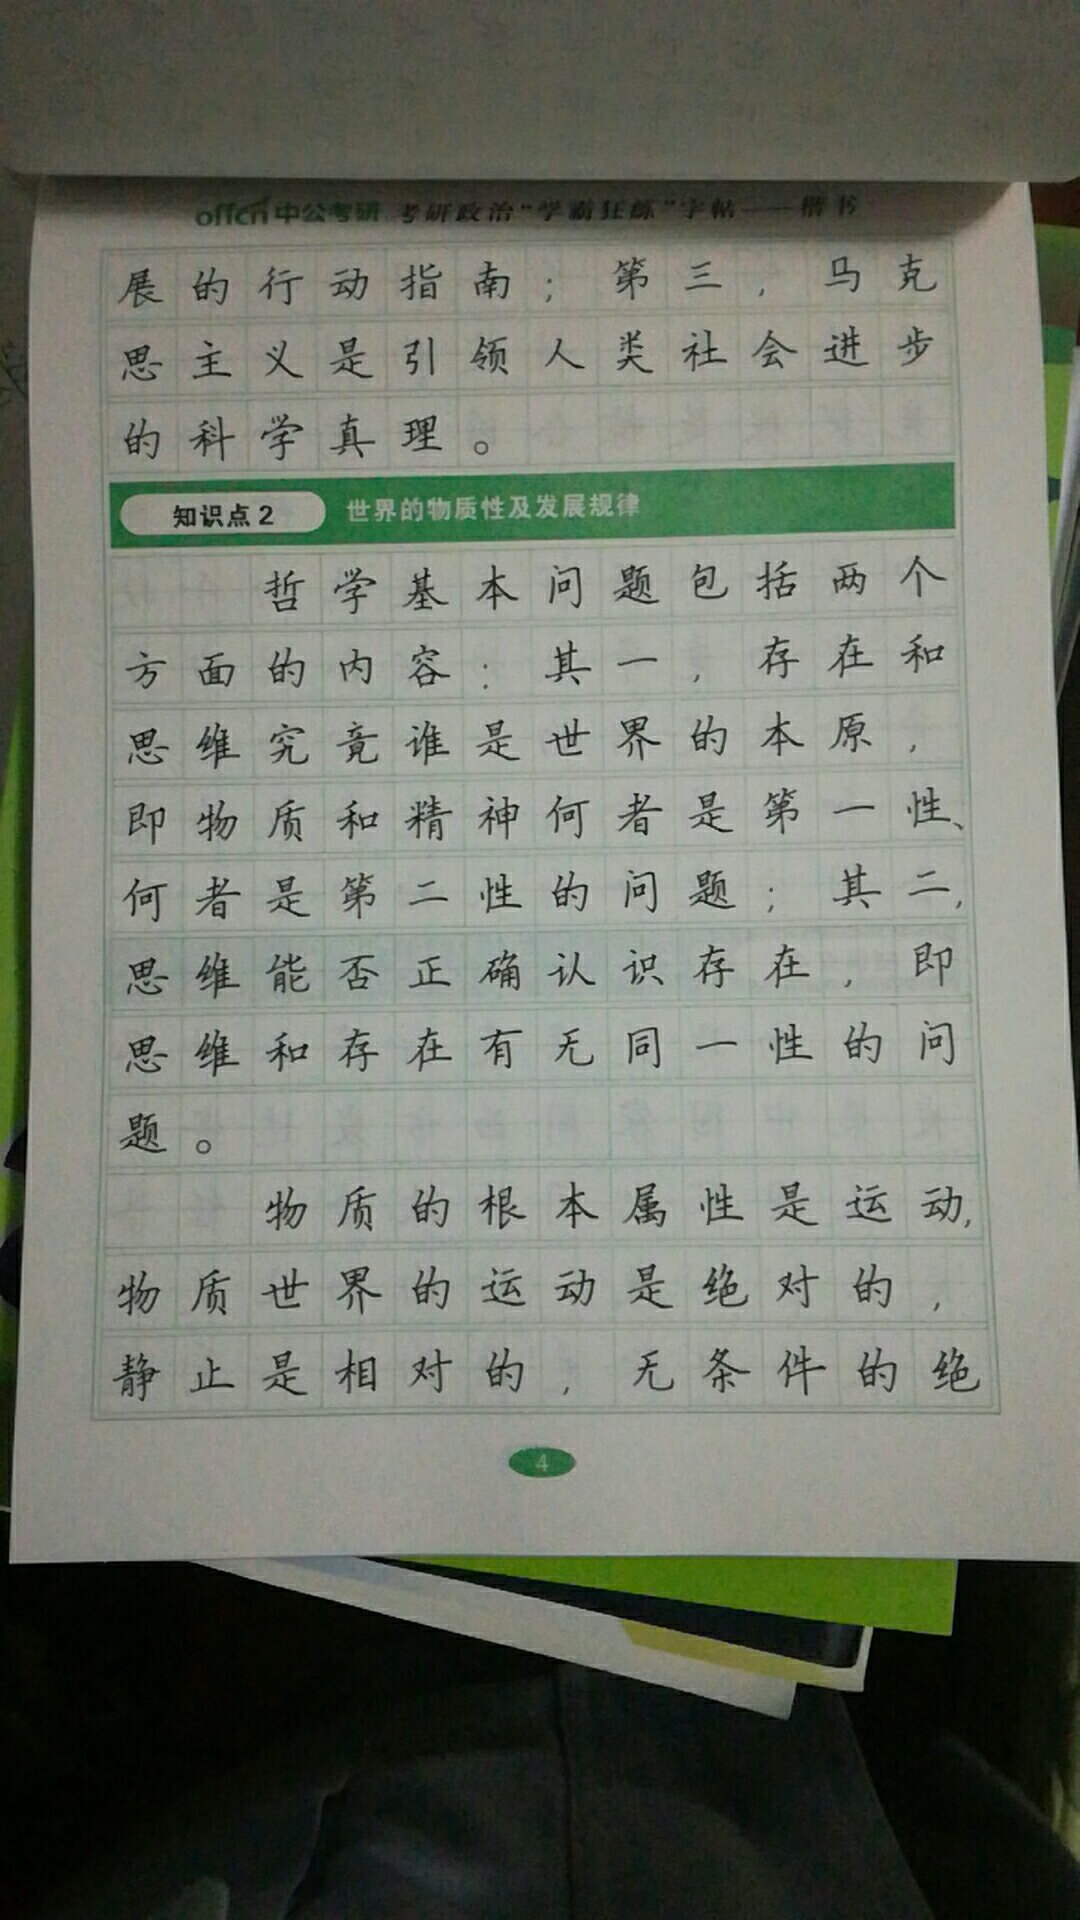 offcn中公考研 考研政治“学霸狂练”字帖——楷书
展的行动指南；第三，马克
思主义是引领人类社会进步
的科学真理。
知识点2 世界的物质性及发展规律
哲学基本问题包括两个
方面的内容：其一，存在和
思维究竟谁是世界的本原，
即物质和精神何者是第一性、
何者是第二性的问题；其二，
思维能否正确认识存在，即
思维和存在有无同一性的问
题。
物质的根本属性是运动，
物质世界的运动是绝对的，
静止是相对的，无条件的绝
4